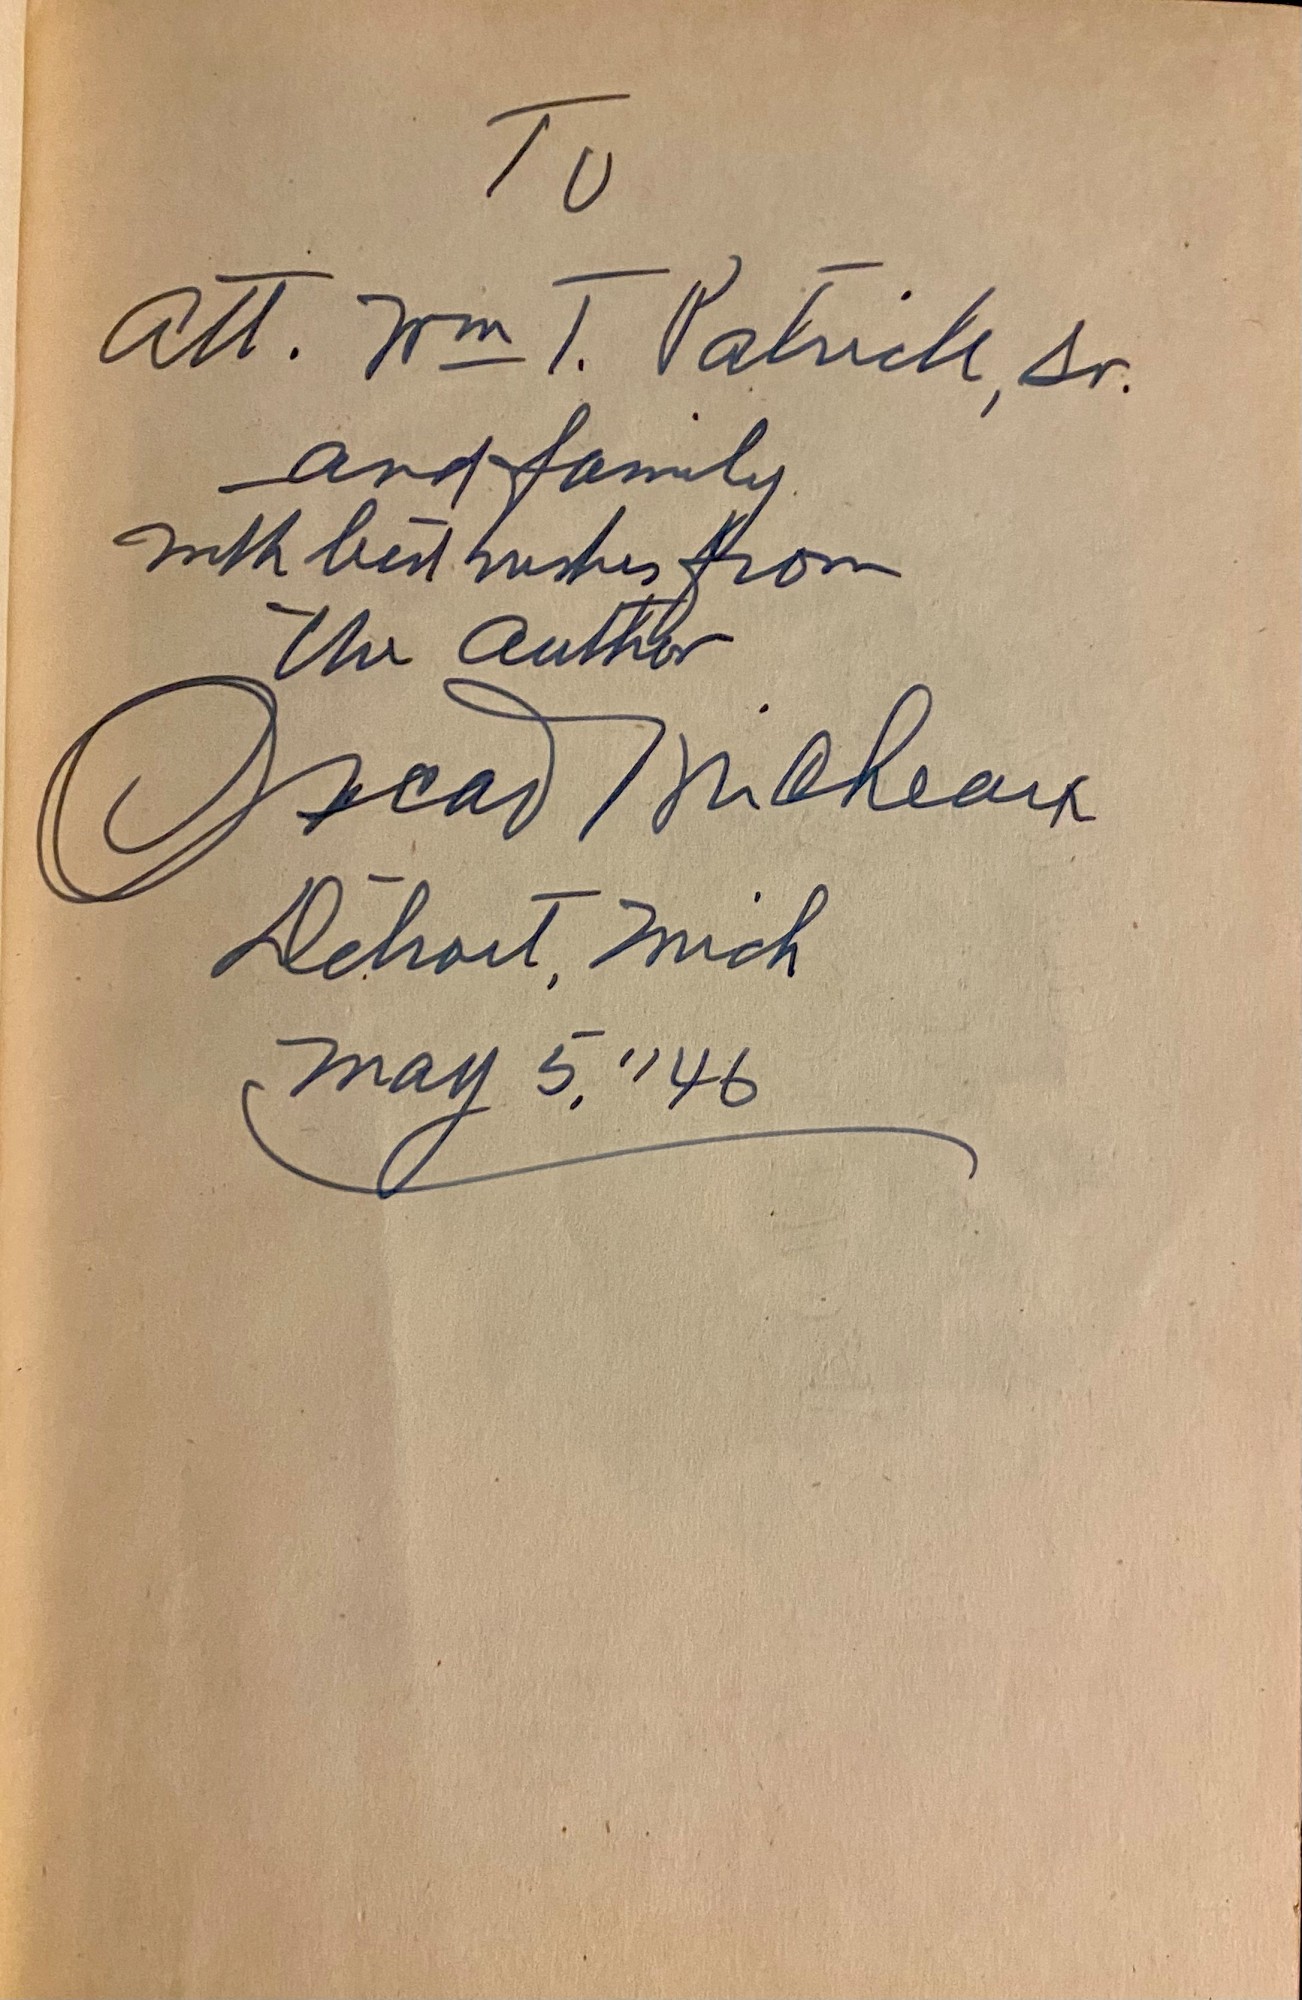 To
Att. Wm T. Patrick, Sr.
and family
with best wishes from
the author
Oscar Micheaux
Detroit, Mich
May 5, "46